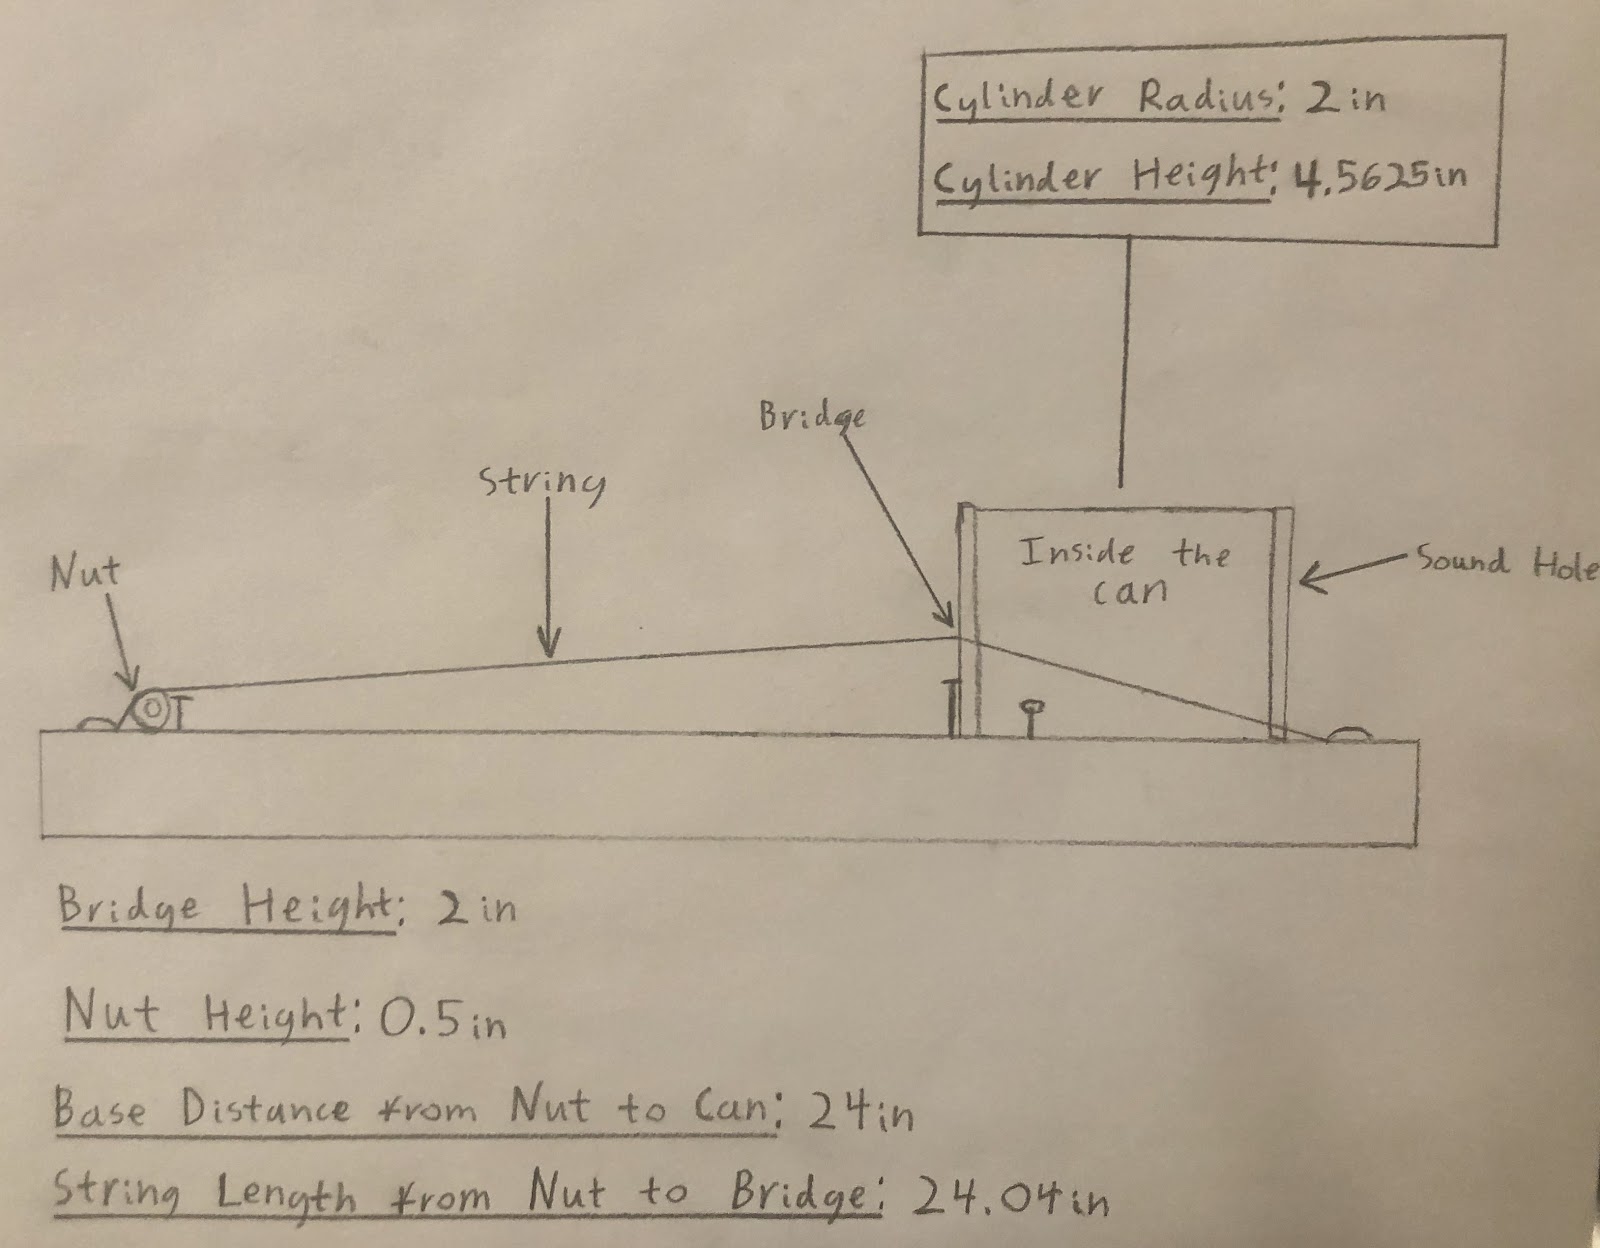 Cylinder Radius: 2in
Cylinder Height: 4.5625in
Bridge
String
Nut
Inside the
can
Sound Hole
Bridge Height: 2in
Nut Height: 0.5in
Base Distance from Nut to Can: 24in
String Length from Nut to Bridge: 24.04in